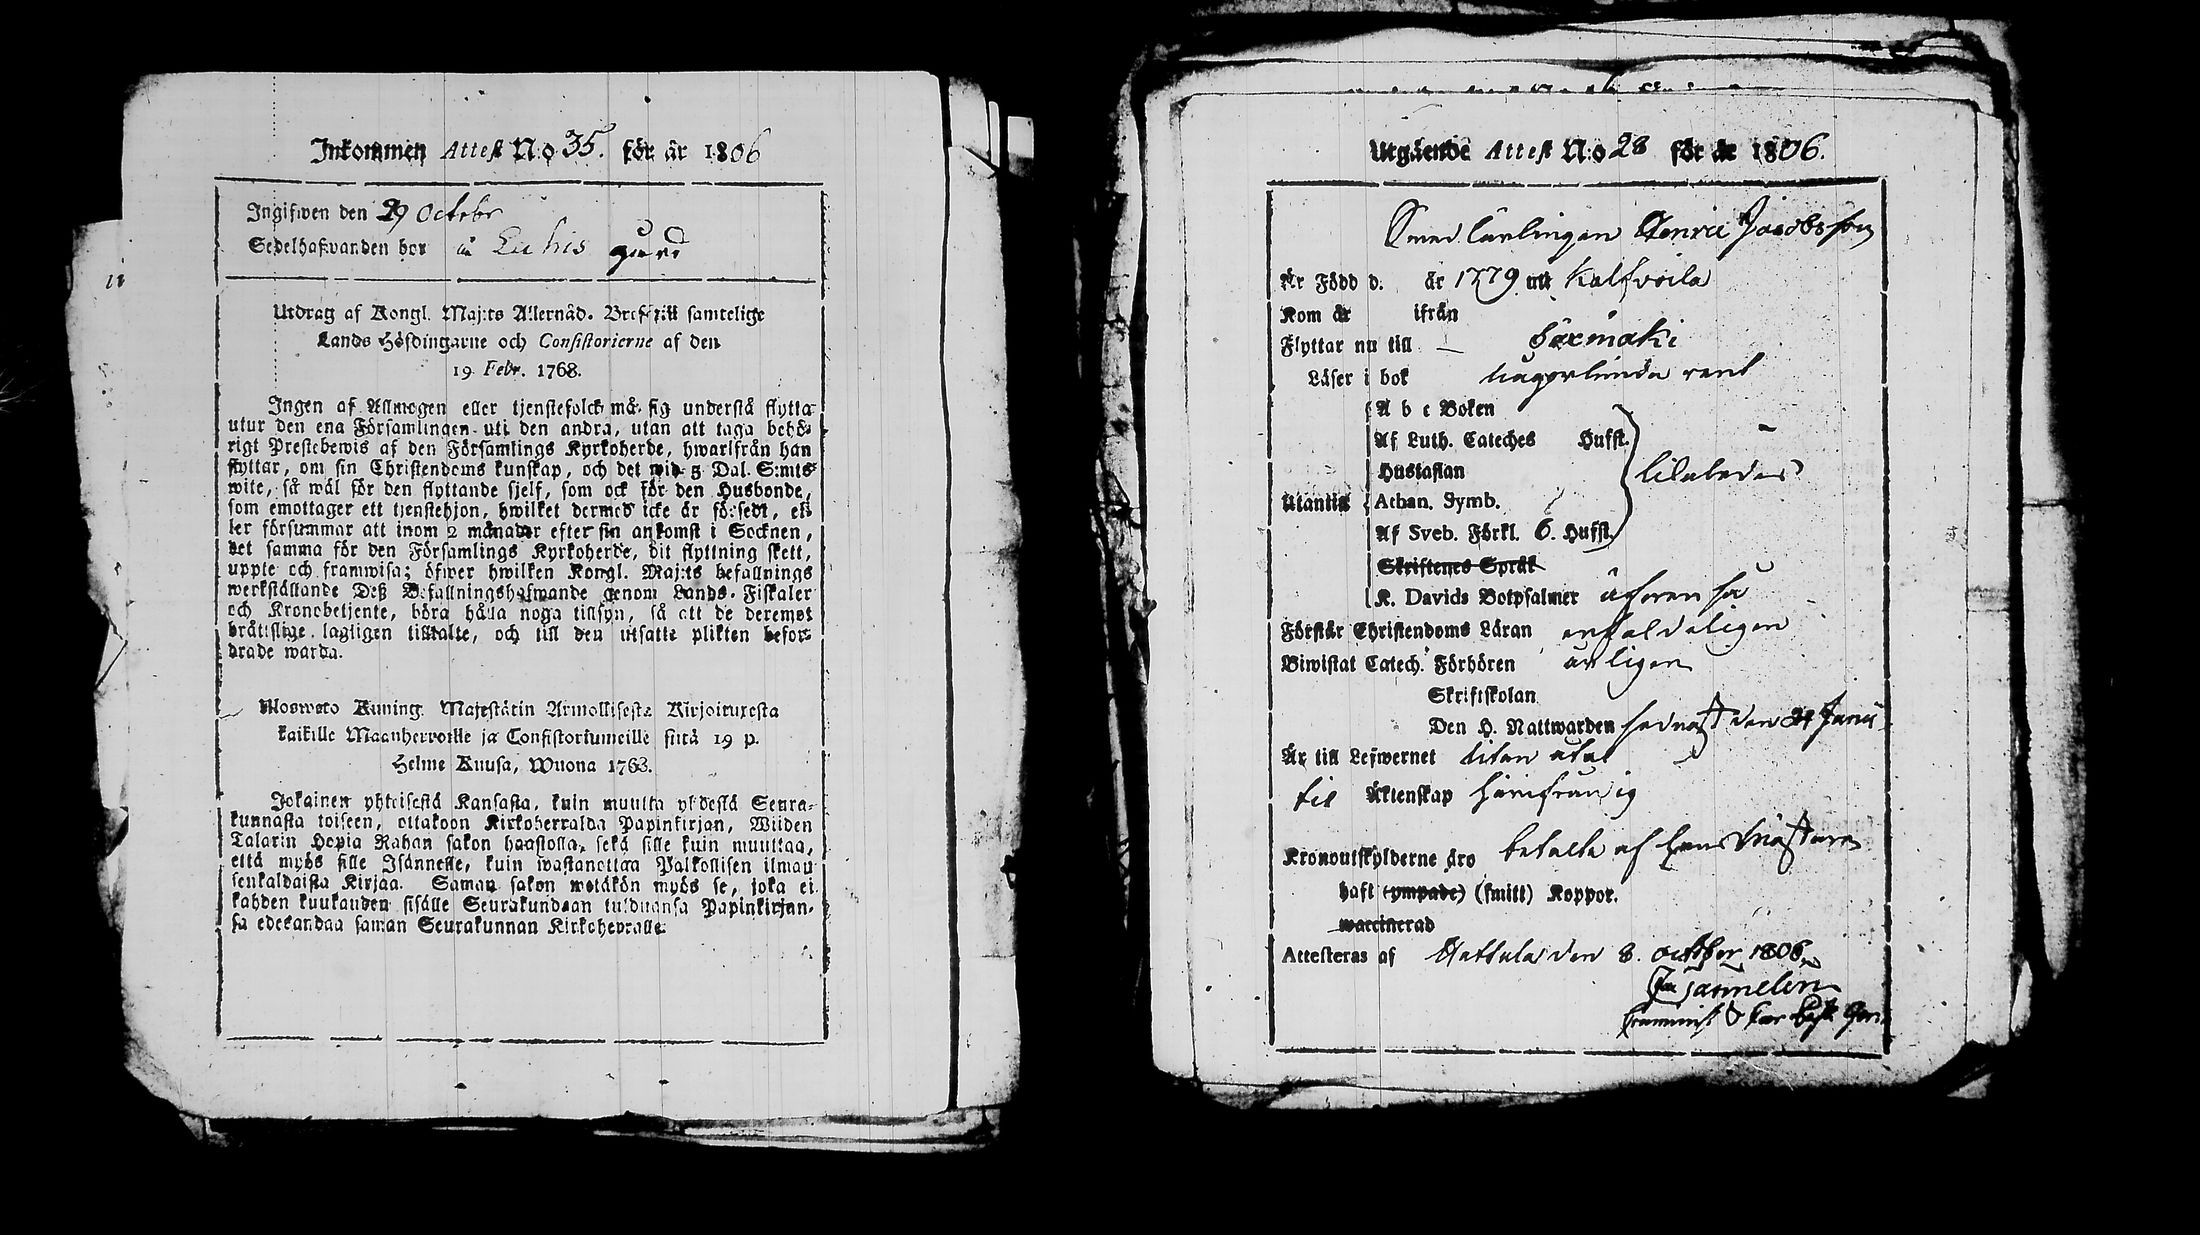 Inkommen Attest No 35. för år 1806
Ingifwen den 29 Octobr
Sedelhafwanden bor i Luhis gård
Utdrag af Kongl. Maj:ts Allernåd. Bref till samtelige
Lands Höfdingarne och Consistorierne af den
19 Febr. 1768.
Ingen af Allmogen eller tjenstefolck må sig understå flytta
utur den ena Församlingen uti den andra, utan att taga behö-
rigt Prestebewis af den Församlings Kyrkoherde, hwarifrån han
flyttar, om sin Christendoms kunskap, och det wid 5 Dal. S:mts
wite, så wäl för den flyttande sjelf, som ock för den Husbonde,
som emottager ett tjenstehjon, hwilket dermed icke är försedt, el-
ler försummar att inom 2 månader efter sin ankomst i Socknen,
det samma för den Församlings Kyrkoherde, dit flyttning skett,
uppte och framwisa; öfwer hwilken Kongl. Maj:ts befallnings
werkställande Deß Befallningshafwande genom Lands-Fiskaler
och Kronobetjente, böra hålla noga tillsyn, så att de deremot
bråttslige lagligen tilltalte, och till den utsatte plikten befor-
drade warda.
Uloswето Kuning. Majestätin Armollisesta Kirjoituxesta
kaikille Maanherroille ja Consistoriumeille siitä 19 p.
Helme Kuusa, Wuonna 1763.
Jokainen yhteisestä Kansasta, kuin muutta yhdestä Seura-
kunnasta toiseen, ottakoon Kirkoherralda Papinkirjan, Wiiden
Talarin Hopia Rahan sakon haastolla, sekä sille kuin muuttaa,
että myös sille Isännelle, kuin wastanottaa Palkollisen ilman
senkaldaista Kirjaa. Saman sakon wetäkön myös se, joka ei
kahden kuukauden sisälle Seurakundaan tulduansa Papinkirjan-
sa edeskandaa saman Seurakunnan Kirkoherralle.
Utgående Attest No 28 för år 1806.
Smed Lärlingen Henric Jacobsson
Är Född d. år 1779 uti Kalfvoila
Kom år ifrån
Flyttar nu till — Säxmäki
Läser i bok någorlunda rent
A b c Boken
Af Luth. Cateches Hufst.
Hustaflan
Utantill Athan. Symb.
Af Sveb. Förkl. 6. Hufst.
Skriftenes Språk
K. Davids Botpsalmer äfven så
Förstår Christendoms Läran enfaldeligen
Biwistat Catech. Förhören årligen
Skriftskolan
Den H. Nattwarden sednast den 24 Junii
Är till Lefwernet utan
til Äktenskap
Kronoutskylderne äro betalte af hans Mästare
haft (ympade) (smitt) Koppor.
waccinerad
Attesteras af Hattula den 8. october 1806.